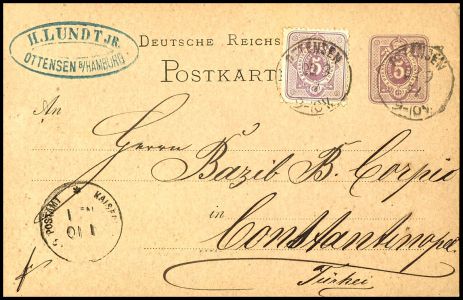 H. LUNDT JR.
OTTENSEN B/HAMBURG
DEUTSCHE REICHS
POSTKART
5
5
OTTENSEN
OTTENSEN
9-10V.
9-10V.
An
Herrn Bazib B. Corpi
in
Constantinopel
Türkei
KAISER
POSTAMT
1 10